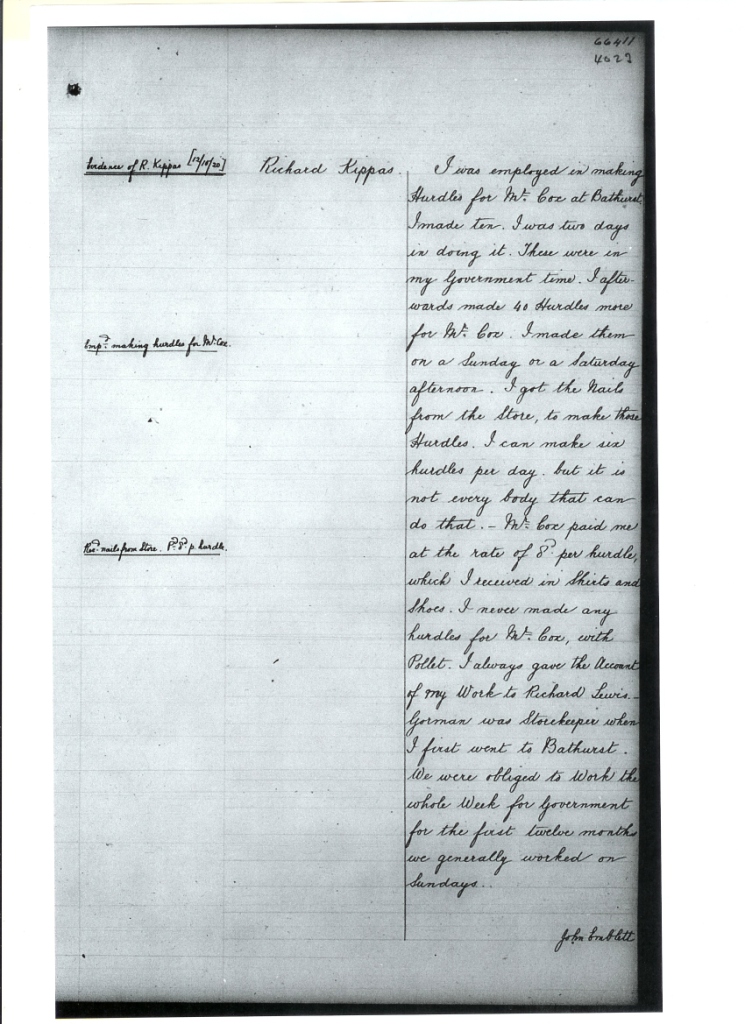 66411
4023
Evidence of R. Kippas [12/10/20]
Richard Kippas.
I was employed in making
Hurdles for Mr. Cox at Bathurst.
I made ten. I was two days
in doing it. These were in
my Government time. I after-
wards made 40 Hurdles more
for Mr. Cox. I made them
on a Sunday or a Saturday
afternoon. I got the Nails
from the Store, to make those
Hurdles. I can make six
hurdles per day. but it is
not every body that can
do that. – Mr. Cox paid me
at the rate of 8d per hurdle,
which I received in Shirts and
Shoes. I never made any
hurdles for Mr. Cox, with
Pollet. I always gave the Account
of my Work to Richard Lewis. –
Gorman was Storekeeper when
I first went to Bathurst.
We were obliged to Work the
whole Week for Government
for the first twelve months
we generally worked on
Sundays..
Empd. making hurdles for Mr. Cox.
Recd. nails from Store. Pd. 8d p hurdle.
John